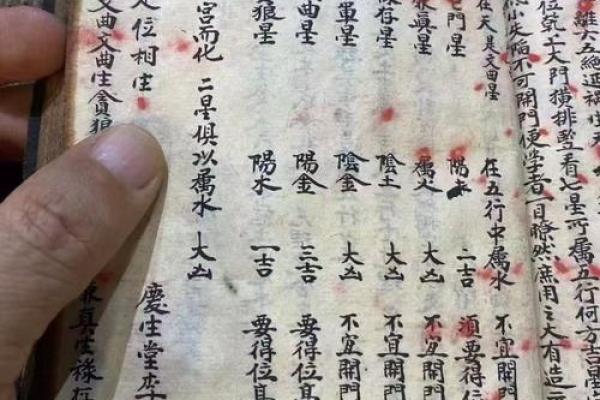 離六五絕延禍生天
位 大門橫排豎看七星所屬五行何方吉星
小失陷不可開門便學者一目瞭然庶用之大有造
在天是文曲星 在五行中屬水 不宜開門
門星 陽 二吉 須要得位
廉真星 屬火 大凶 不宜開門
祿存星 陰土 大凶 不宜開門
軍星 陰金 大凶 不宜開門
曲星 陽金 三吉 要得位高
狼星 陽水 一吉 要得位高
宮而化 二星俱以屬水 大凶
位相生 慶生堂李
文曲文曲生貪狼 真生祿存